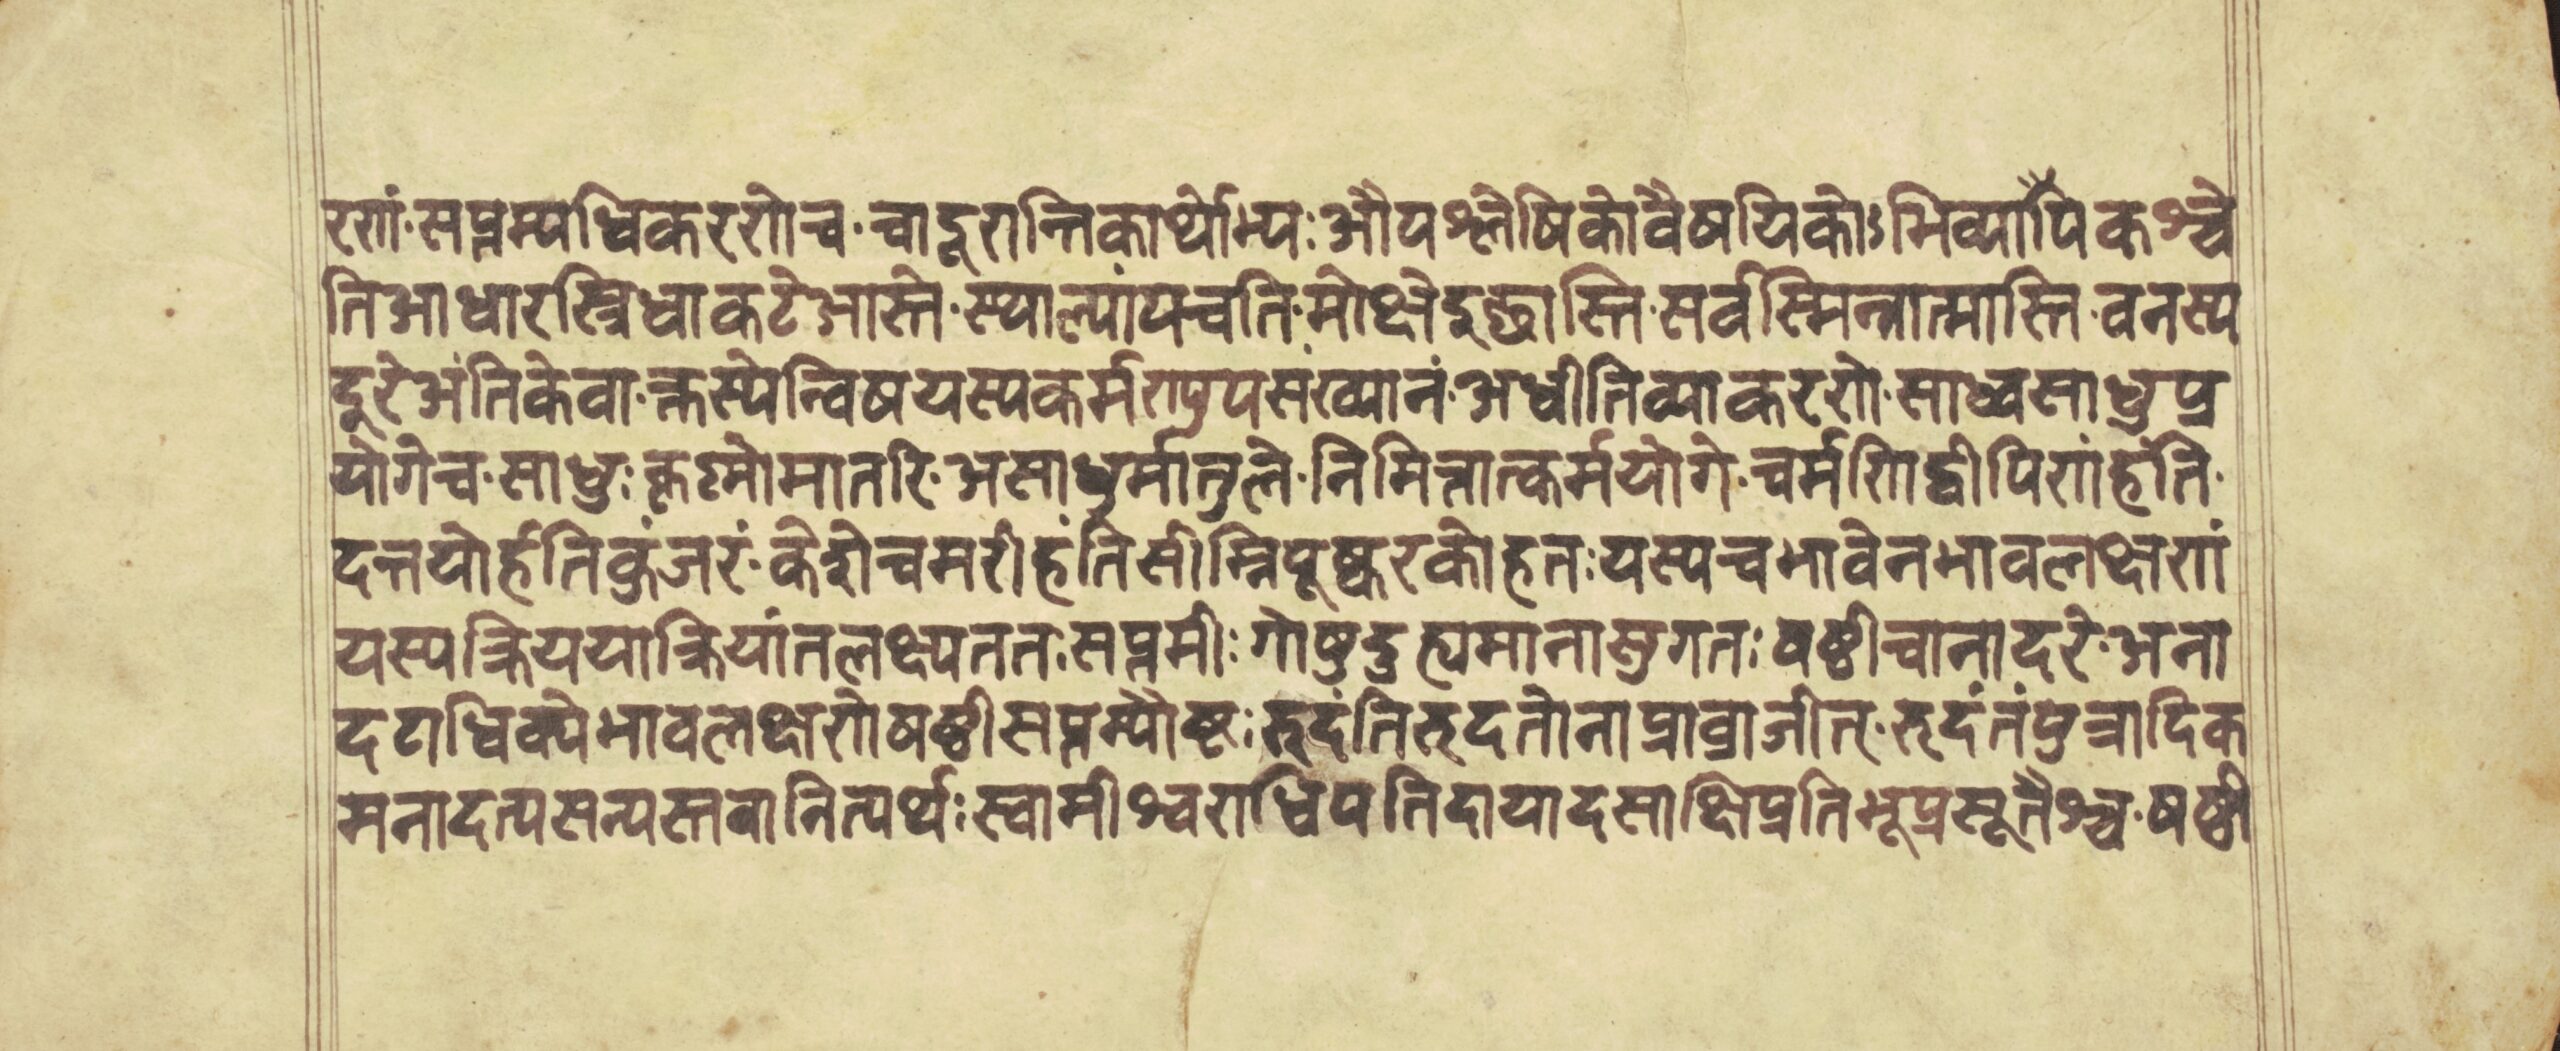 रणं॰सप्तम्यधिकरणेच॰चाद्दूरान्तिकार्थेभ्यः औपश्लेषिकोवैषयिकोऽभिव्यापिकश्चे
तिआधारस्त्रिधाकटेआस्ते॰स्थाल्यांपचति॰मोक्षेइच्छास्ति॰सर्वस्मिन्नात्मास्ति॰वनस्य
दूरेअंतिकेवा॰क्तस्येन्विषयस्यकर्मण्युपसंख्यानं॰अधीतिव्याकरणे॰साध्वसाधुप्र
योगेच॰साधुःकृष्णोमातरि॰असाधुर्मातुले॰निमित्तात्कर्मयोगे॰चर्मणिद्वीपिणंहंति॰
दन्तयोर्हंतिकुंजरं॰केशेचमरींहंतिसीम्निपूष्करकोहतः यस्यचभावेनभावलक्षणं
यस्यक्रिययाक्रियांतलक्ष्यततःसप्तमीः गोषुदुह्यमानासुगतः षष्ठीचानादरे॰अना
दराधिक्येभावलक्षणेषष्ठीसप्तम्यौष्टः रुदंतिरुदतोनाप्राव्राजीत्॰रुदंतंपुत्रादिक
मनादत्यसन्यस्तवानित्यर्थः स्वामीश्वराधिपतिदायादसाक्षिप्रतिभूप्रसूतैश्च॰षष्ठी